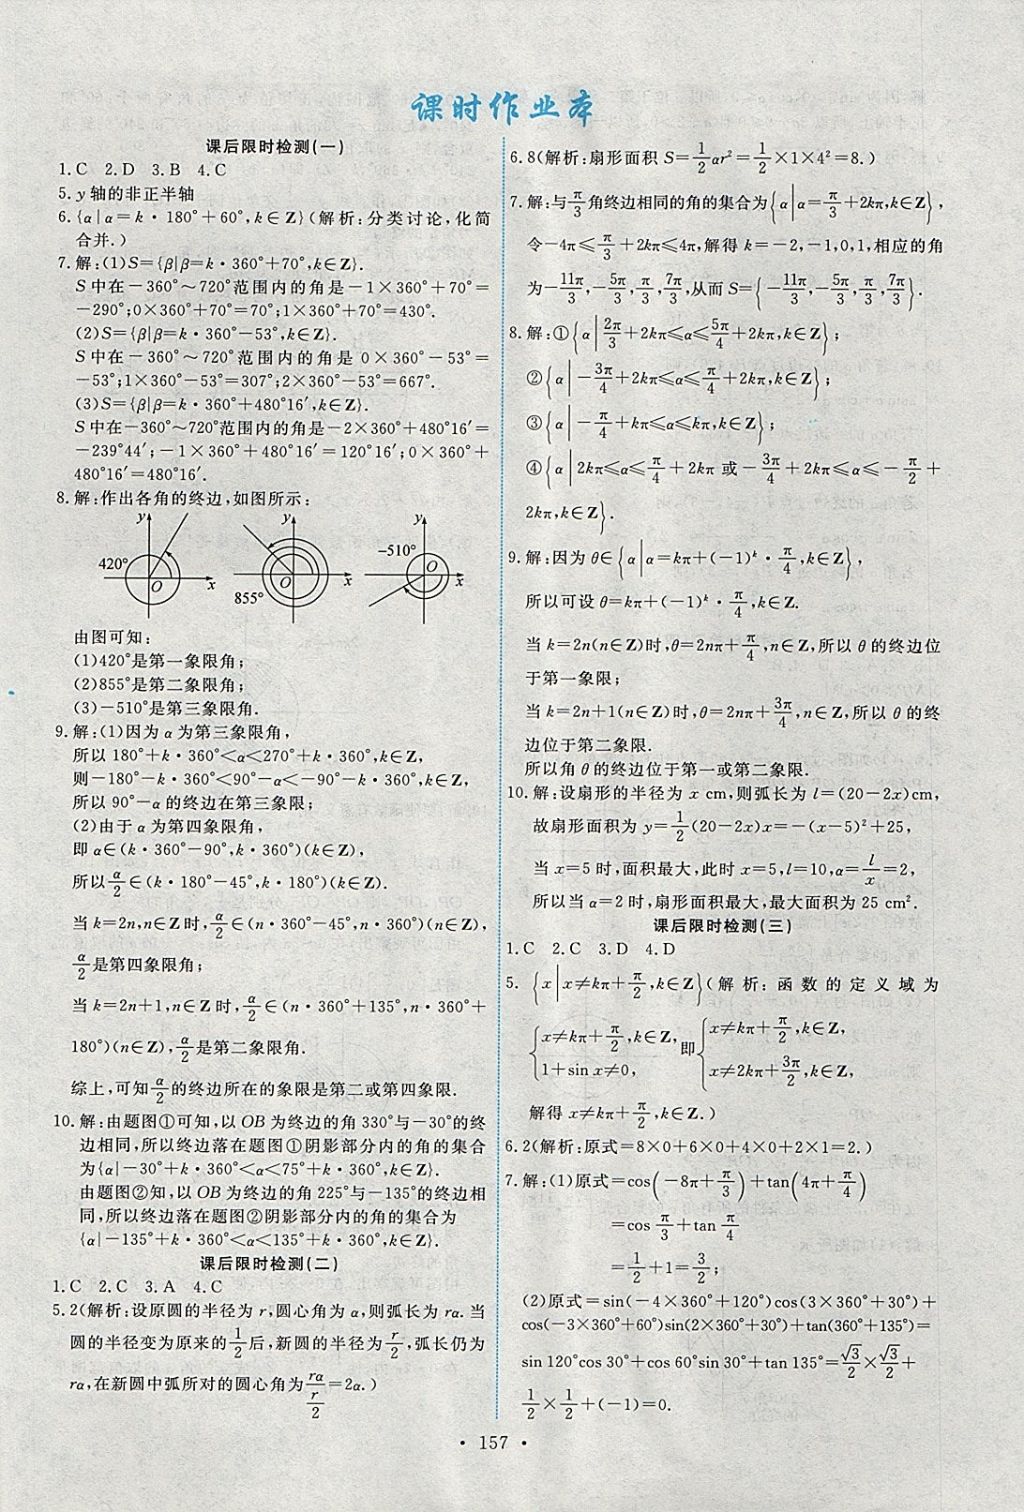 课时作业本
课后限时检测(一)
1.C  2.D  3.B  4.C
5.y轴的非正半轴
6.{α|α=k·180°+60°,k∈Z}(解析:分类讨论,化简
合并.)
7.解:(1)S={β|β=k·360°+70°,k∈Z}.
S中在-360°~720°范围内的角是-1×360°+70°=
-290°;0×360°+70°=70°;1×360°+70°=430°.
(2)S={β|β=k·360°-53°,k∈Z}.
S中在-360°~720°范围内的角是0×360°-53°=
-53°;1×360°-53°=307°;2×360°-53°=667°.
(3)S={β|β=k·360°+480°16′,k∈Z}.
S中在-360°~720°范围内的角是-2×360°+480°16′=
-239°44′;-1×360°+480°16′=120°16′;0×360°+
480°16′=480°16′.
8.解:作出各角的终边,如图所示:
y 420° O x
y 855° O x
y -510° O x
由图可知:
(1)420°是第一象限角;
(2)855°是第二象限角;
(3)-510°是第三象限角.
9.解:(1)因为α为第三象限角,
所以180°+k·360°<α<270°+k·360°,k∈Z,
则-180°-k·360°<90°-α<-90°-k·360°,k∈Z,
所以90°-α的终边在第三象限;
(2)由于α为第四象限角,
即α∈(k·360°-90°,k·360°)(k∈Z),
所以α/2∈(k·180°-45°,k·180°)(k∈Z).
当k=2n,n∈Z时,α/2∈(n·360°-45°,n·360°)(n∈Z),
α/2是第四象限角;
当k=2n+1,n∈Z时,α/2∈(n·360°+135°,n·360°+
180°)(n∈Z),α/2是第二象限角.
综上,可知α/2的终边所在的象限是第二或第四象限.
10.解:由题图①可知,以OB为终边的角330°与-30°的终
边相同,所以终边落在题图①阴影部分内的角的集合
为{α|-30°+k·360°<α<75°+k·360°,k∈Z}.
由题图②知,以OB为终边的角225°与-135°的终边相
同,所以终边落在题图②阴影部分内的角的集合为
{α|-135°+k·360°<α<135°+k·360°,k∈Z}.
课后限时检测(二)
1.C  2.C  3.A  4.C
5.2(解析:设原圆的半径为r,圆心角为α,则弧长为rα.当
圆的半径变为原来的1/2后,新圆的半径为r/2,弧长仍为
rα,在新圆中弧所对的圆心角为rα/(r/2)=2α.)
6.8(解析:扇形面积S=1/2αr²=1/2×1×4²=8.)
7.解:与π/3角终边相同的角的集合为{α|α=π/3+2kπ,k∈Z},
令-4π≤π/3+2kπ≤4π,解得k=-2,-1,0,1,相应的角
为-11π/3,-5π/3,π/3,7π/3,从而S={-11π/3,-5π/3,π/3,7π/3}.
8.解:①{α|2π/3+2kπ≤α≤5π/4+2kπ,k∈Z};
②{α|-3π/4+2kπ≤α≤π/4+2kπ,k∈Z};
③{α|-π/4+kπ≤α≤kπ,k∈Z};
④{α|2kπ≤α≤π/4+2kπ或-3π/4+2kπ≤α≤-π/2+
2kπ,k∈Z}.
9.解:因为θ∈{α|α=kπ+(-1)ᵏ·π/4,k∈Z},
所以可设θ=kπ+(-1)ᵏ·π/4,k∈Z.
当k=2n(n∈Z)时,θ=2nπ+π/4,n∈Z,所以θ的终边位
于第一象限;
当k=2n+1(n∈Z)时,θ=2nπ+3π/4,n∈Z,所以θ的终
边位于第二象限.
所以角θ的终边位于第一或第二象限.
10.解:设扇形的半径为x cm,则弧长为l=(20-2x)cm,
故扇形面积为y=1/2(20-2x)x=-(x-5)²+25,
当x=5时,面积最大,此时x=5,l=10,α=l/x=2,
所以当α=2时,扇形面积最大,最大面积为25 cm².
课后限时检测(三)
1.C  2.C  3.D  4.D
5.{x|x≠kπ+π/2,k∈Z}(解析:函数的定义域为
{x≠kπ+π/2,k∈Z, 1+sin x≠0, 即{x≠kπ+π/2,k∈Z, x≠2kπ+3π/2,k∈Z,
解得x≠kπ+π/2,k∈Z.)
6.2(解析:原式=8×0+6×0+4×0+2×1=2.)
7.解:(1)原式=cos(-8π+π/3)+tan(4π+π/4)
=cos π/3+tan π/4
=1/2+1=3/2;
(2)原式=sin(-4×360°+120°)cos(3×360°+30°)+
cos(-3×360°+60°)sin(2×360°+30°)+tan(360°+135°)=
sin 120°cos 30°+cos 60°sin 30°+tan 135°=√3/2×√3/2+
1/2×1/2+(-1)=0.
·157·